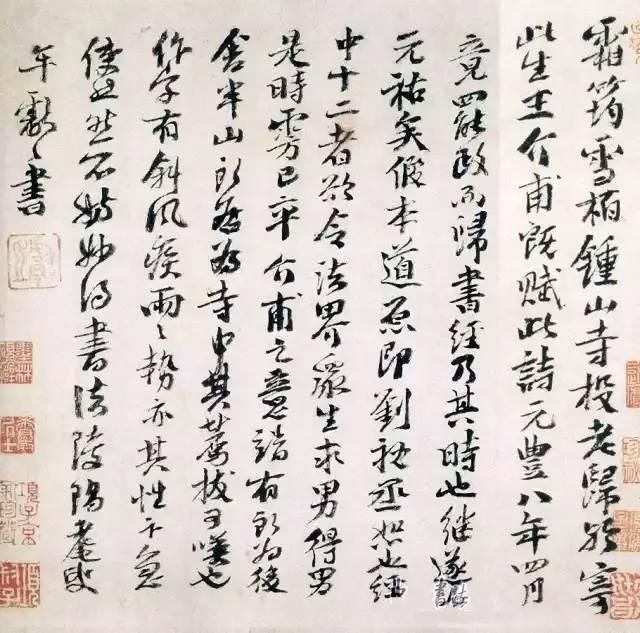 霜筠雪柏鍾山寺投老歸歟寄
此生王介甫既賦此詩元豐八年四月
竟罷政而歸書經乃其時也继遂
元祐矣假本道原即劉秘丞恕也經
中十二者欲令法界眾生求男得男
是時雱已卒介甫之意有所為後
舍半山所居為寺由其薦拔可嘆也
作字有斜風疾雨之勢亦其性卞急
使之然不妨妙得書法陵陽耄叟
牟巘書